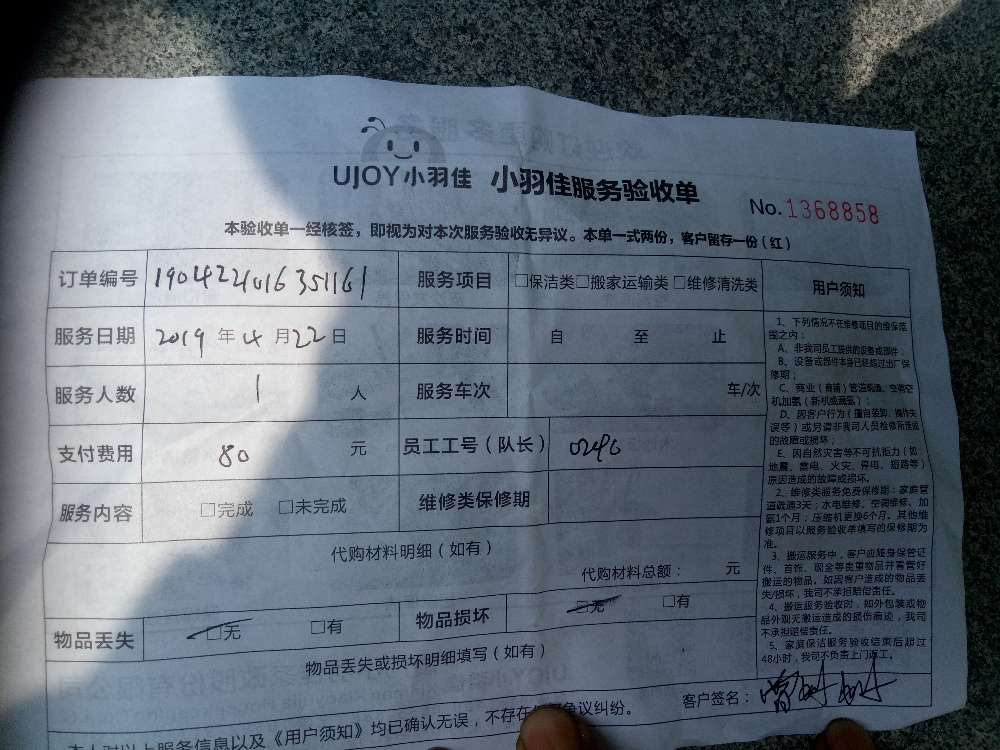 UJOY小羽佳 小羽佳服务验收单
No.1368858
本验收单一经核签，即视为对本次服务验收无异议。本单一式两份，客户留存一份（红）
订单编号 服务项目 □保洁类□搬家运输类□维修清洗类 用户须知
服务日期 2019年4月22日 服务时间 自 至 止
服务人数 1 人 服务车次 车/次
支付费用 80 元 员工工号（队长）
服务内容 □完成 □未完成 维修类保修期
代购材料明细（如有）
代购材料总额： 元
物品丢失 □无 □有 物品损坏 □无 □有
物品丢失或损坏明细填写（如有）
客户签名：
1、下列情况不在维修项目的维保范
围之内：
A、非我司员工提供的设备或部件；
B、设备或部件本身已经超过出厂保
修期；
C、商业（商铺）管道疏通、空调空
机加氨（新机或藏氨）；
D、因客户行为（擅自装卸、操作失
误等）或另请非我司人员检修所造成
的故障或损坏；
E、因自然灾害等不可抗拒力（如
地震、雷电、火灾、停电、短路等）
原因造成的故障或损坏。
2、维修类服务免费保修期：家庭管
道疏通3天；水电维修、空调维修、加
氨1个月；压缩机更换6个月。其他维
修项目以服务验收单填写的保修期为
准。
3、搬运服务中，客户应随身保管证
件、首饰、现金等贵重物品并看管好
搬运的物品。如因客户造成的物品丢
失/损坏，我司不承担赔偿责任。
4、搬运服务验收时，如外包装或物
品外观无搬运造成的损伤痕迹，我司
不承担赔偿责任。
5、家庭保洁服务验收结束后超过
48小时，我司不负责上门返工。
本人对以上服务信息以及《用户须知》均已确认无误，不存在任何争议纠纷。